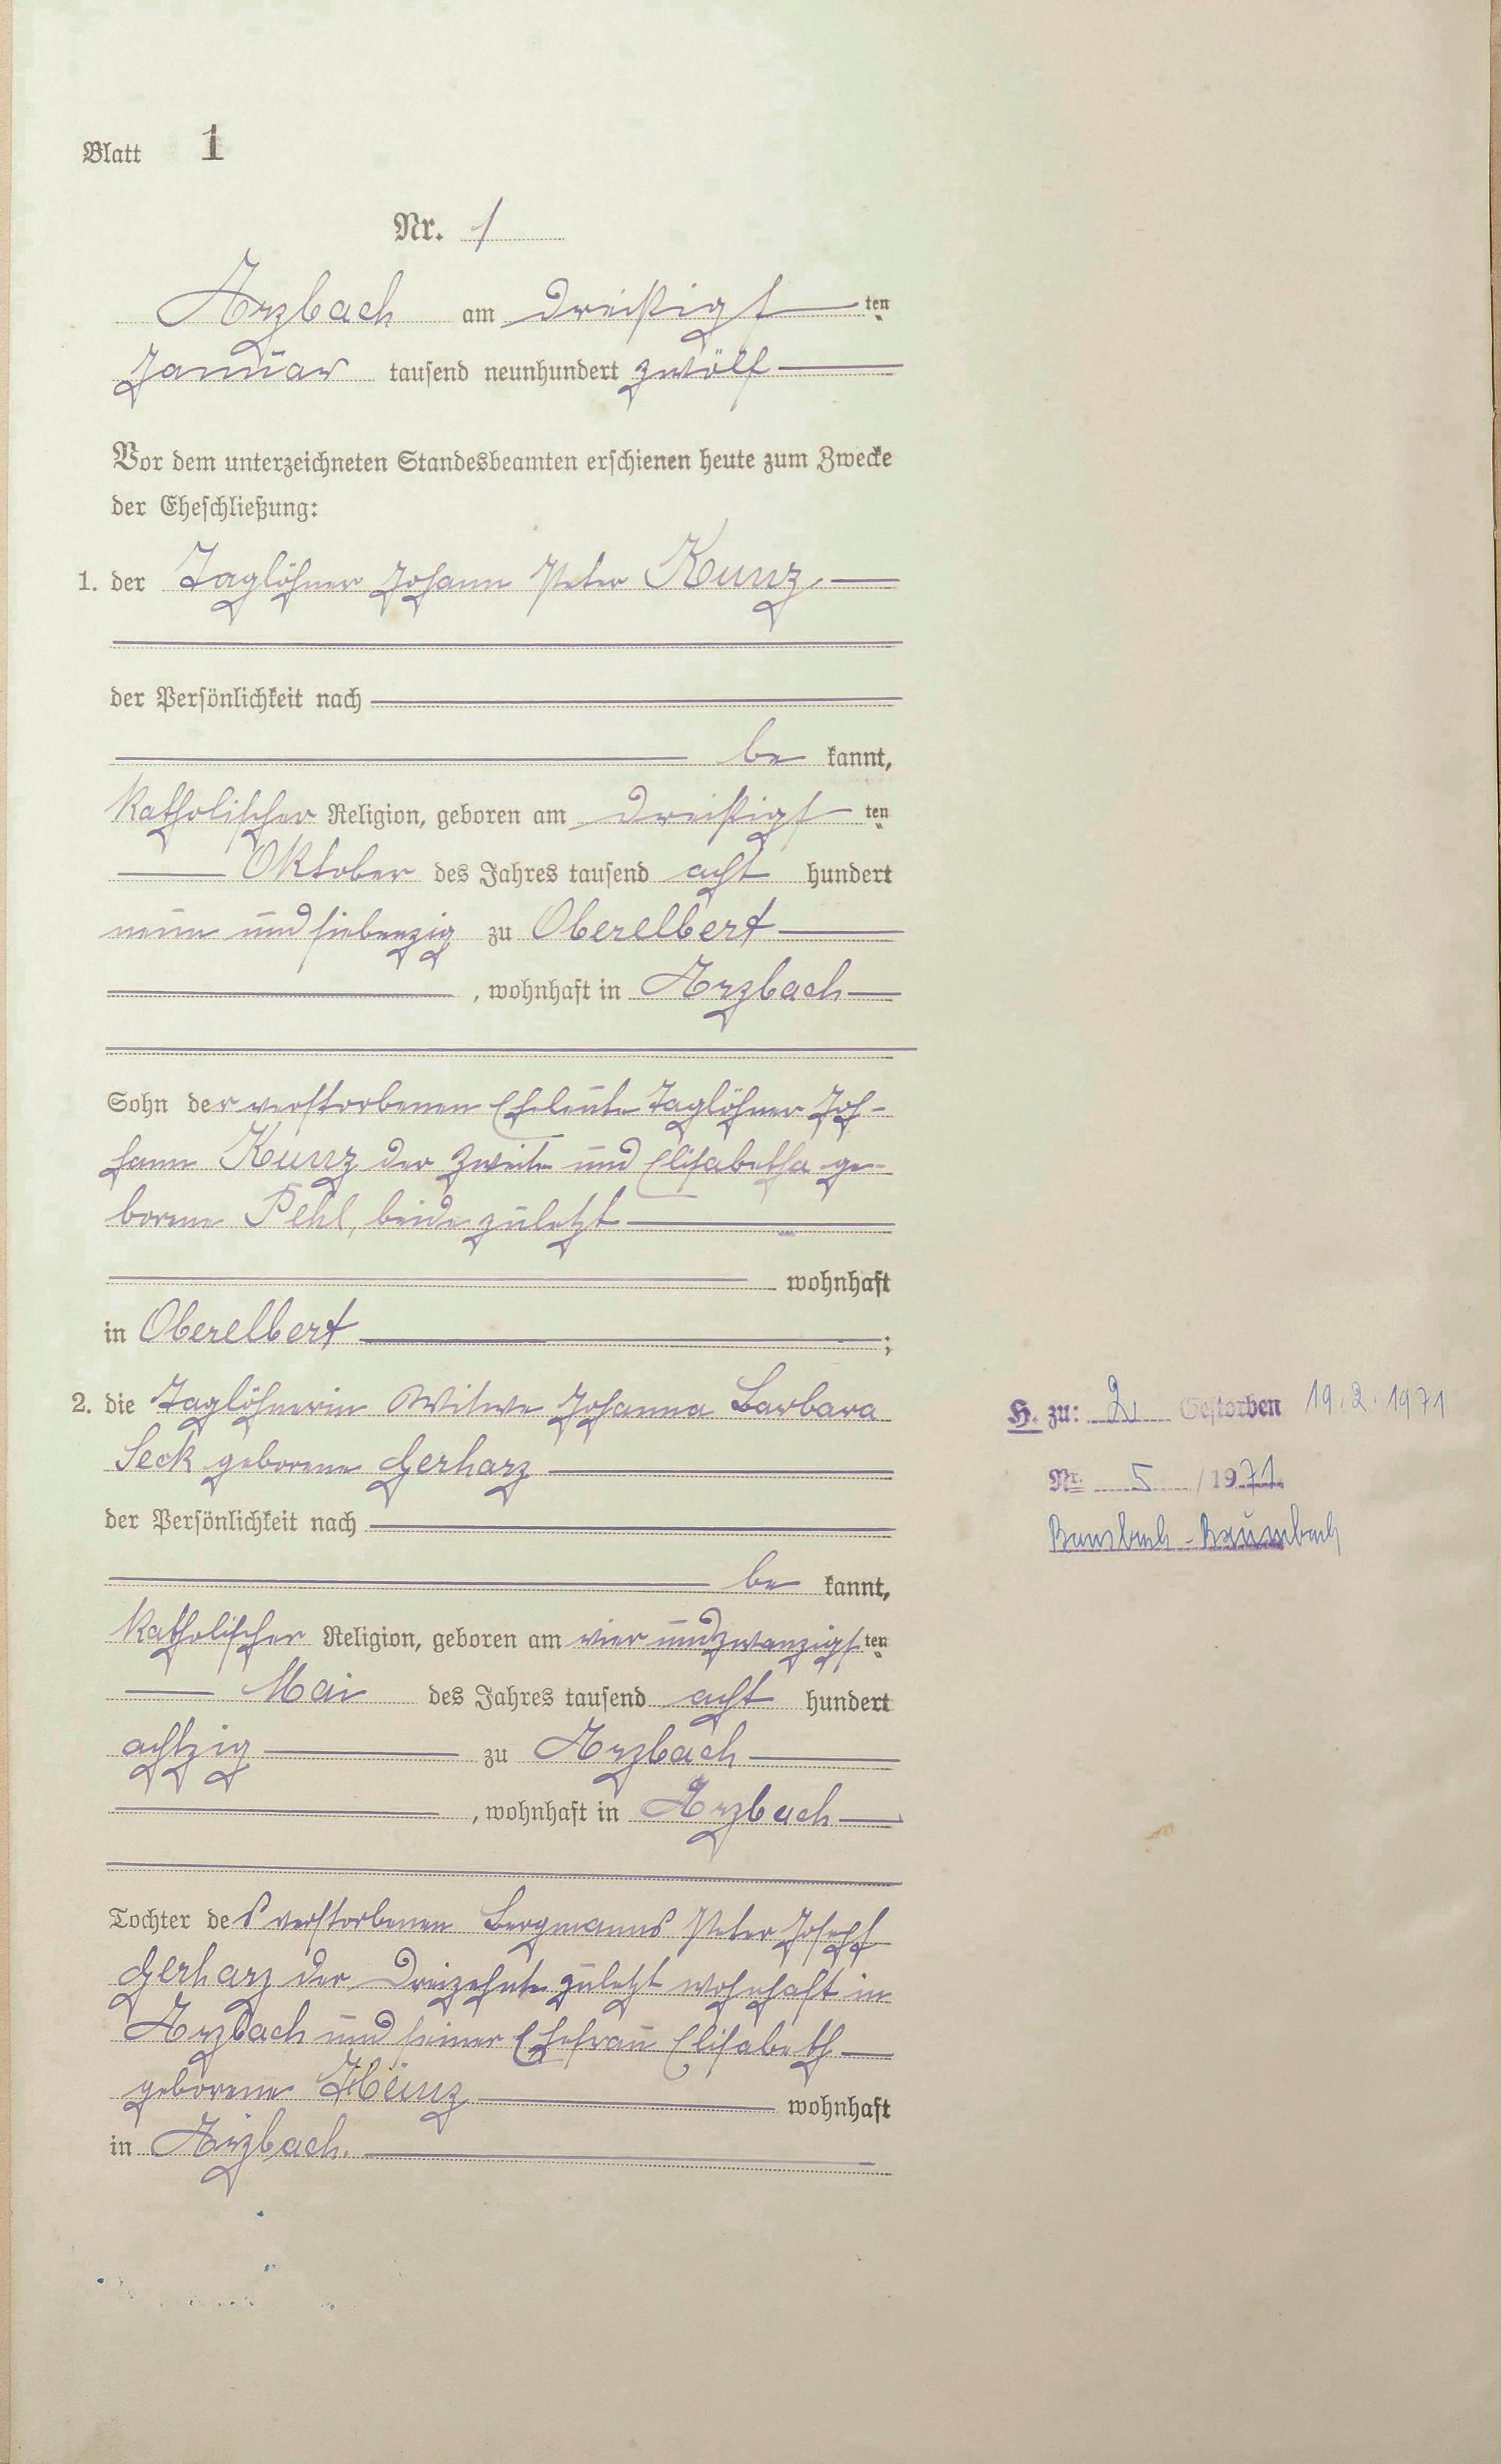 Blatt 1
Nr. 1
Arzbach am dreißigsten
Januar tausend neunhundert zwölf
Vor dem unterzeichneten Standesbeamten erschienen heute zum Zwecke
der Eheschließung:
1. der Taglöhner Johann Peter Kunz,
der Persönlichkeit nach
be kannt,
katholischer Religion, geboren am dreißigsten
Oktober des Jahres tausend acht hundert
neun und siebenzig zu Oberelbert
, wohnhaft in Arzbach
Sohn der verstorbenen Eheleute Taglöhner Jo-
hann Kunz der Zweite und Elisabetha ge-
borene Pehl, beide zuletzt
wohnhaft
in Oberelbert ;
2. die Taglöhnerin Witwe Johanna Barbara
Seck geborene Gerharz
der Persönlichkeit nach
be kannt,
katholischer Religion, geboren am vier und zwanzigsten
Mai des Jahres tausend acht hundert
achtzig zu Arzbach
, wohnhaft in Arzbach
Tochter des verstorbenen Bergmanns Peter Joseph
Gerharz der Dreizehnte zuletzt wohnhaft in
Arzbach und seiner Ehefrau Elisabeth
geborene wohnhaft
in Arzbach.
H. zu: 2 Gestorben 19.2.1971
Nr. 5 / 1971
Ransbach-Baumbach